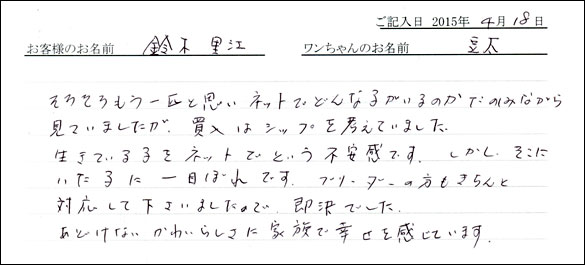 ご記入日 2015年 4月 18日
お客様のお名前 鈴木 里江 ワンちゃんのお名前 豆太
そろそろもう一匹と思い ネットでどんな子がいるのか たのみながら
見ていましたが、買入はショップを考えていました。
生きている子をネットでという不安感です。しかし、そこに
いた子に一目ぼれです。ブリーダーの方もきちんと
対応して下さいましたので、即決でした。
あどけないかわいらしさに家族で幸せを感じています。